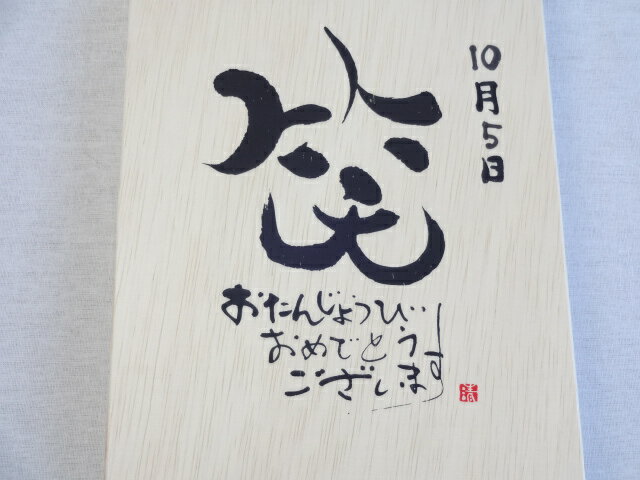 10月5日
笑
おたんじょうび
おめでとう
ございます